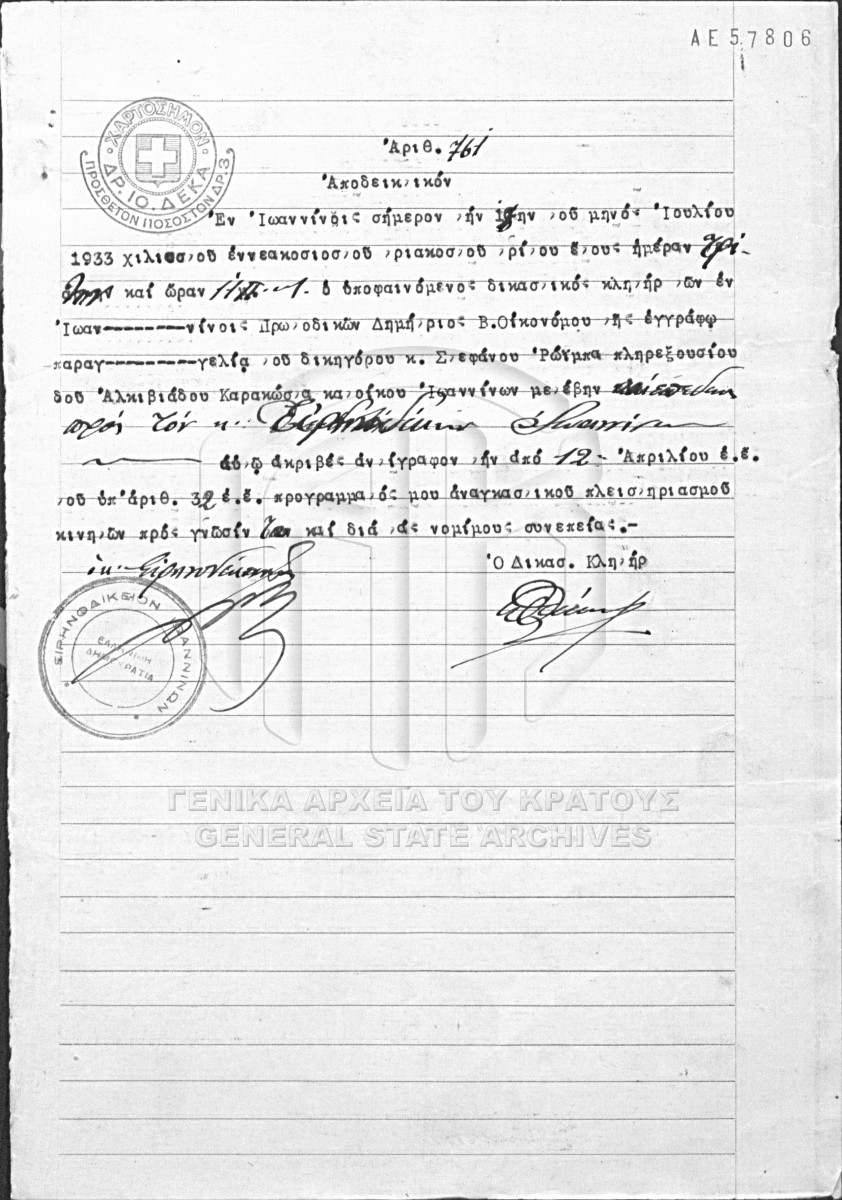 ΑΕ 57806
ΧΑΡΤΟΣΗΜΟΝ
ΔΡ. 10. ΔΕΚΑ
ΠΡΟΣΘΕΤΟΝ ΠΟΣΟΣΤΟΝ ΔΡ. 3
Ἀριθ. 761
Ἀποδεικτικόν
Ἐν Ἰωαννίνοις σήμερον τήν την τοῦ μηνός Ἰουλίου
1933 χιλιοστοῦ ἐννεακοσιοστοῦ τριακοστοῦ τρίτου ἔτους ἡμέραν Τρί-
την καί ὥραν 11 ὁ ὑποφαινόμενος δικαστικός κλητήρ τῶν ἐν
Ἰωαν----------νίνοις Πρωτοδικῶν Δημήτριος Β.Οἰκονόμου τῆς ἐγγράφῳ
παραγ----------γελίᾳ τοῦ δικηγόρου κ. Στεφάνου Ῥωίμπα πληρεξουσίου
δου Ἀλκιβιάδου Καρακώστα κατοίκου Ἰωαννίνων μετέβην καί ἐπέδωκα
πρός τόν κ. Εἰρηνοδίκην Ἰωαννίνων
αὐτῷ ἀκριβές ἀντίγραφον τήν ἀπό 12 - Ἀπριλίου ἐ.ἔ.
τοῦ ὑπ'ἀριθ. 32 ἐ.ἔ. προγράμματός μου ἀναγκαστικοῦ πλειστηριασμοῦ
κινητῶν πρός γνῶσίν του καί διά τάς νομίμους συνεπείας.-
Ὁ Δικασ. Κλητήρ
ΕΙΡΗΝΟΔΙΚΕΙΟΝ ΙΩΑΝΝΙΝΩΝ
ΕΛΛΗΝΙΚΗ
ΔΗΜΟΚΡΑΤΙΑ
ΓΕΝΙΚΑ ΑΡΧΕΙΑ ΤΟΥ ΚΡΑΤΟΥΣ
GENERAL STATE ARCHIVES